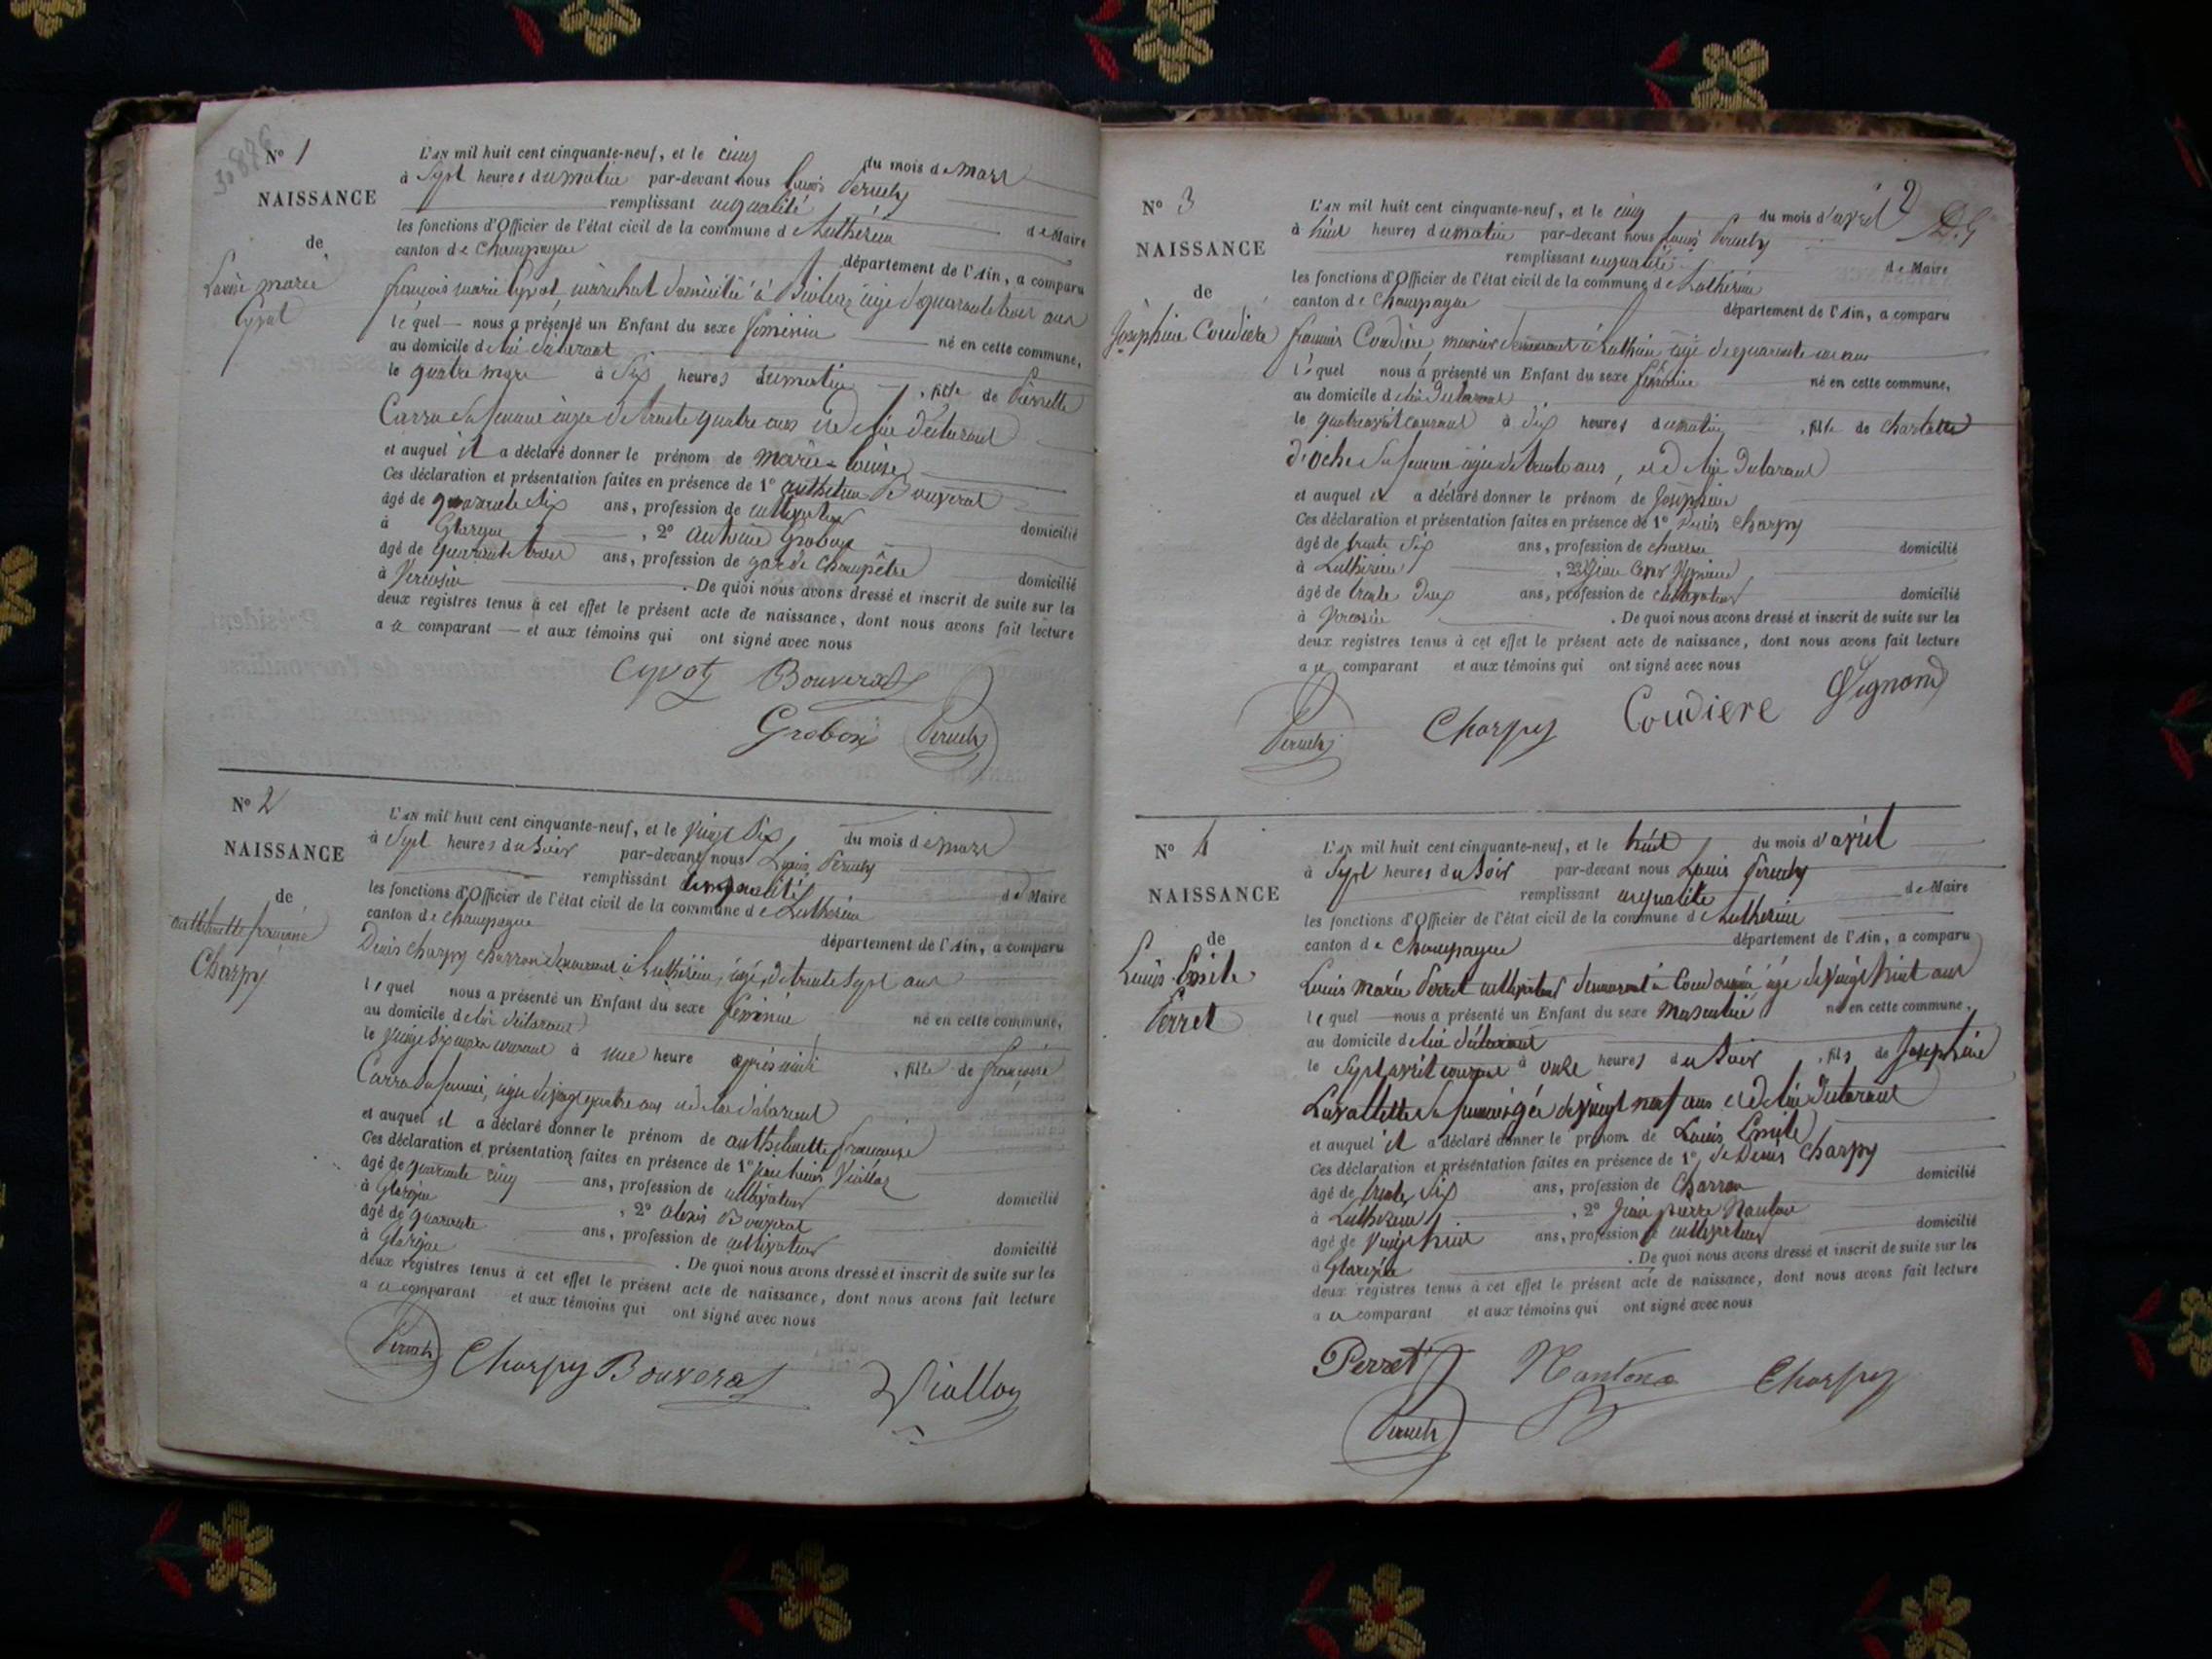 N° 1
NAISSANCE
de
Louise marie
Cyvot
L'AN mil huit cent cinquante-neuf, et le cinq du mois de Mars
à Sept heures du matin par-devant nous Louis Peruchy
remplissant en qualité de Maire
les fonctions d'Officier de l'état civil de la commune de Luthézieu
canton de Champagne département de l'Ain, a comparu
françois marie Cyvot, maréchal domicilié à agé de quarante trois ans
lequel nous a présenté un Enfant du sexe feminin né en cette commune,
au domicile de lui déclarant
le quatre mars à Six heures du matin, fille de Pierrette
Carra Sa femme agée de trente quatre ans et de lui déclarant
et auquel il a déclaré donner le prénom de marie-Louise
Ces déclaration et présentation faites en présence de 1° anthelme Bouverat
âgé de quarante Six ans, profession de cultivateur domicilié
à 2° antoine Grobon
âgé de quarante trois ans, profession de garde champêtre domicilié
à Vercosin. De quoi nous avons dressé et inscrit de suite sur les
deux registres tenus à cet effet le présent acte de naissance, dont nous avons fait lecture
a ce comparant et aux témoins qui ont signé avec nous
Cyvot Bouverat
Grobon Peruchy
N° 2
NAISSANCE
de
anthelmette françoise
Charpy
L'AN mil huit cent cinquante-neuf, et le vingt Six du mois de mars
à Sept heures du Soir par-devant nous Louis Peruchy
remplissant en qualité de Maire
les fonctions d'Officier de l'état civil de la commune de Luthézieu
canton de Champagne département de l'Ain, a comparu
Denis Charpy charron demeurant à Luthézieu, agé de trente Sept ans
lequel nous a présenté un Enfant du sexe féminin né en cette commune,
au domicile de lui déclarant
le vingt Six mars courant à une heure après midi, fille de françoise
Carra Sa femme, agée de vingt quatre ans et de lui déclarant
et auquel il a déclaré donner le prénom de anthelmette françoise
Ces déclaration et présentation faites en présence de 1° Jean Louis Viallon
âgé de quarante cinq ans, profession de cultivateur domicilié
à 2° alexis Bouverat
âgé de quarante ans, profession de cultivateur domicilié
à De quoi nous avons dressé et inscrit de suite sur les
deux registres tenus à cet effet le présent acte de naissance, dont nous avons fait lecture
a ce comparant et aux témoins qui ont signé avec nous
Peruchy Charpy Bouverat Viallon
2
D.G
N° 3
NAISSANCE
de
Joséphine Coudière
L'AN mil huit cent cinquante-neuf, et le cinq du mois d'avril
à huit heures du matin par-devant nous Louis Peruchy
remplissant en qualité de Maire
les fonctions d'Officier de l'état civil de la commune de Luthézieu
canton de Champagne département de l'Ain, a comparu
françois Coudière, demeurant à Luthézieu agé de quarante un ans
lequel nous a présenté un Enfant du sexe féminin né en cette commune,
au domicile de lui Déclarant
le quatre avril courant à Six heures du matin, fille de charlotte
Sa femme agée de trente ans, et de lui Déclarant
et auquel il a déclaré donner le prénom de Joséphine
Ces déclaration et présentation faites en présence de 1° Denis Charpy
âgé de trente Six ans, profession de charron domicilié
à Luthézieu, 2°
âgé de trente Deux ans, profession de cultivateur domicilié
à Vercosin. De quoi nous avons dressé et inscrit de suite sur les
deux registres tenus à cet effet le présent acte de naissance, dont nous avons fait lecture
a ce comparant et aux témoins qui ont signé avec nous
Peruchy Charpy Coudiere Vignond
N° 4
NAISSANCE
de
Louis Emile
Perret
L'AN mil huit cent cinquante-neuf, et le huit du mois d'avril
à Sept heures du Soir par-devant nous Louis Peruchy
remplissant en qualité de Maire
les fonctions d'Officier de l'état civil de la commune de Luthézieu
canton de Champagne département de l'Ain, a comparu
Louis Marie Perret cultivateur demeurant à agé de vingt huit ans
lequel nous a présenté un Enfant du sexe Masculin né en cette commune,
au domicile de lui déclarant
le Sept avril courant à onze heures du Soir, fils de Joséphine
Lavallette Sa femme agée de vingt neuf ans et de lui Déclarant
et auquel il a déclaré donner le prénom de Louis Emile
Ces déclaration et présentation faites en présence de 1° de Denis Charpy
âgé de trente Six ans, profession de Charron domicilié
à Luthézieu, 2° Jean pierre Nantone
âgé de vingt huit ans, profession de cultivateur domicilié
à De quoi nous avons dressé et inscrit de suite sur les
deux registres tenus à cet effet le présent acte de naissance, dont nous avons fait lecture
a ce comparant et aux témoins qui ont signé avec nous
Perret Nantone Charpy
Peruchy